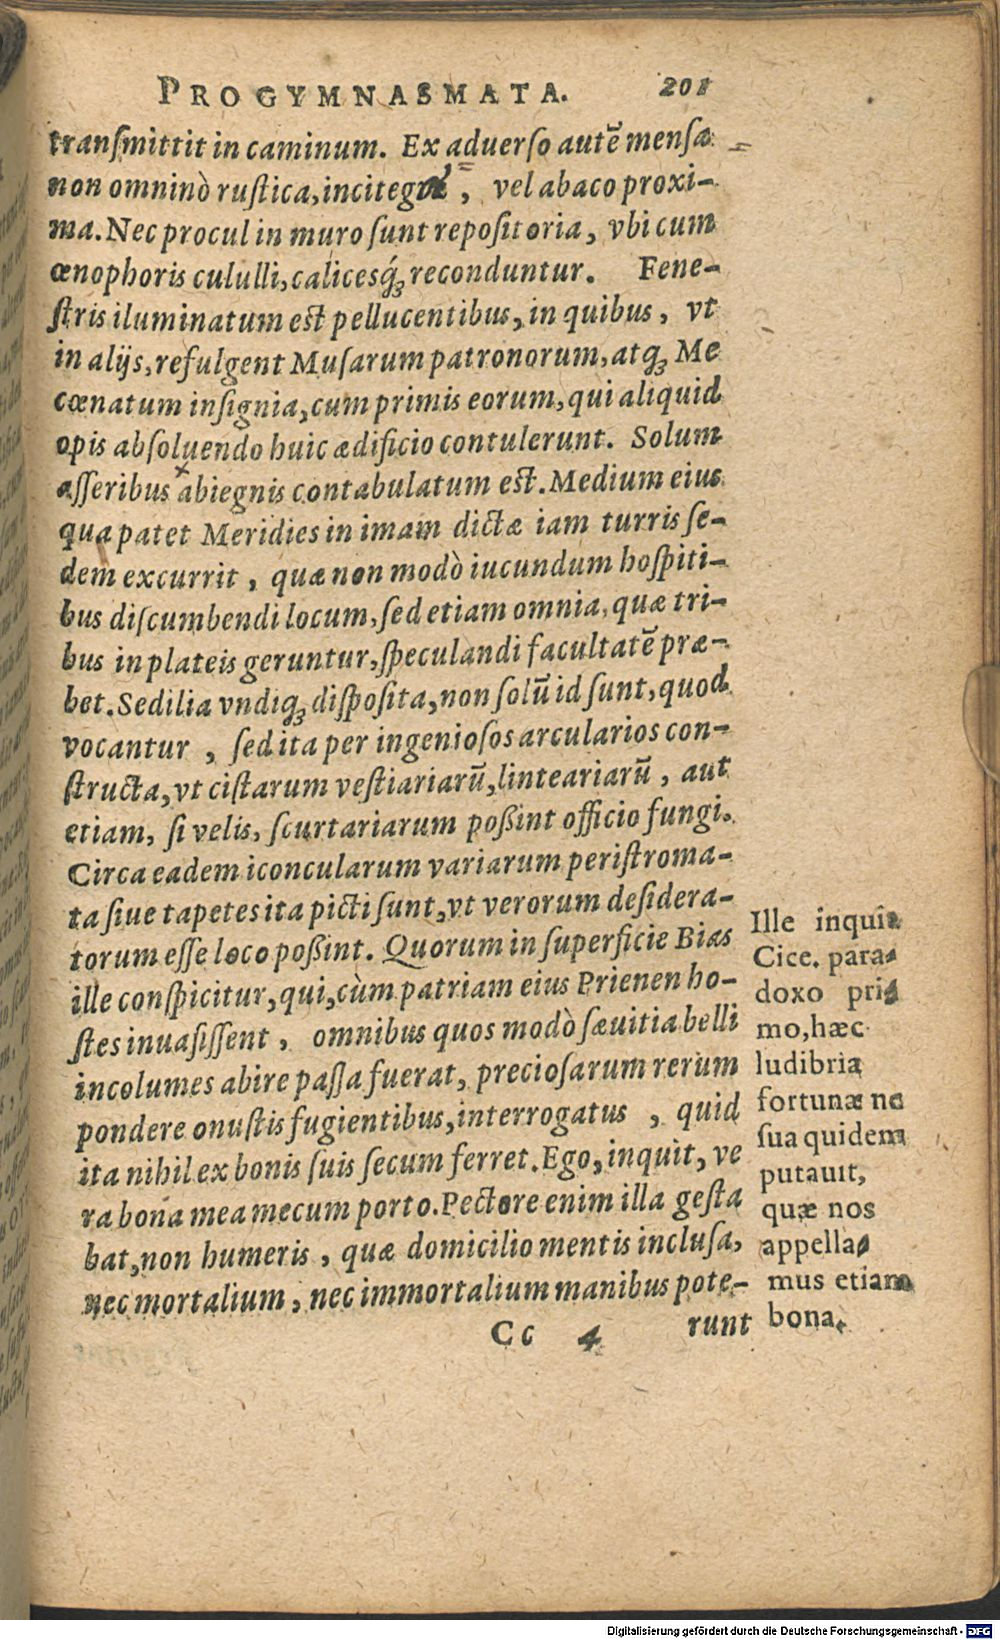 PROGYMNASMATA. 201
tranſmittit in caminum. Ex aduerſo autē menſa
non omninò ruſtica, incitegæ, vel abaco proxi-
ma. Nec procul in muro ſunt repoſitoria, vbi cum
œnophoris cululli, calicesq́; reconduntur. Fene-
ſtris iluminatum eſt pellucentibus, in quibus, vt
in alijs, refulgent Muſarum patronorum, atq; Me
cœnatum inſignia, cum primis eorum, qui aliquid
opis abſoluendo huic ædificio contulerunt. Solum
aſſeribus abiegnis contabulatum eſt. Medium eius
qua patet Meridies in imam dictæ iam turris ſe-
dem excurrit, quæ non modò iucundum hoſpiti-
bus diſcumbendi locum, ſed etiam omnia, quæ tri-
bus in plateis geruntur, ſpeculandi facultatē præ-
bet. Sedilia vndiq; diſpoſita, non ſolū id ſunt, quod
vocantur, ſed ita per ingenioſos arcularios con-
ſtructa, vt ciſtarum veſtiariarū, linteariarū, aut
etiam, ſi velis, ſcurtariarum poßint officio fungi.
Circa eadem iconcularum variarum periſtroma-
ta ſiue tapetes ita picti ſunt, vt verorum deſidera-
torum eſſe loco poßint. Quorum in ſuperficie Bias
ille conſpicitur, qui, cùm patriam eius Prienen ho-
ſtes inuaſiſſent, omnibus quos modò ſæuitia belli
incolumes abire paſſa fuerat, precioſarum rerum
pondere onuſtis fugientibus, interrogatus, quid
ita nihil ex bonis ſuis ſecum ferret. Ego, inquit, ve
ra bona mea mecum porto. Pectore enim illa geſta
bat, non humeris, quæ domicilio mentis incluſa,
nec mortalium, nec immortalium manibus pote-
Cc 4 runt
Ille inquit
Cice. para-
doxo pri-
mo, hæc
ludibria
fortunæ ne
ſua quidem
putauit,
quæ nos
appella-
mus etiam
bona.
Digitalisierung gefördert durch die Deutsche Forschungsgemeinschaft - DFG